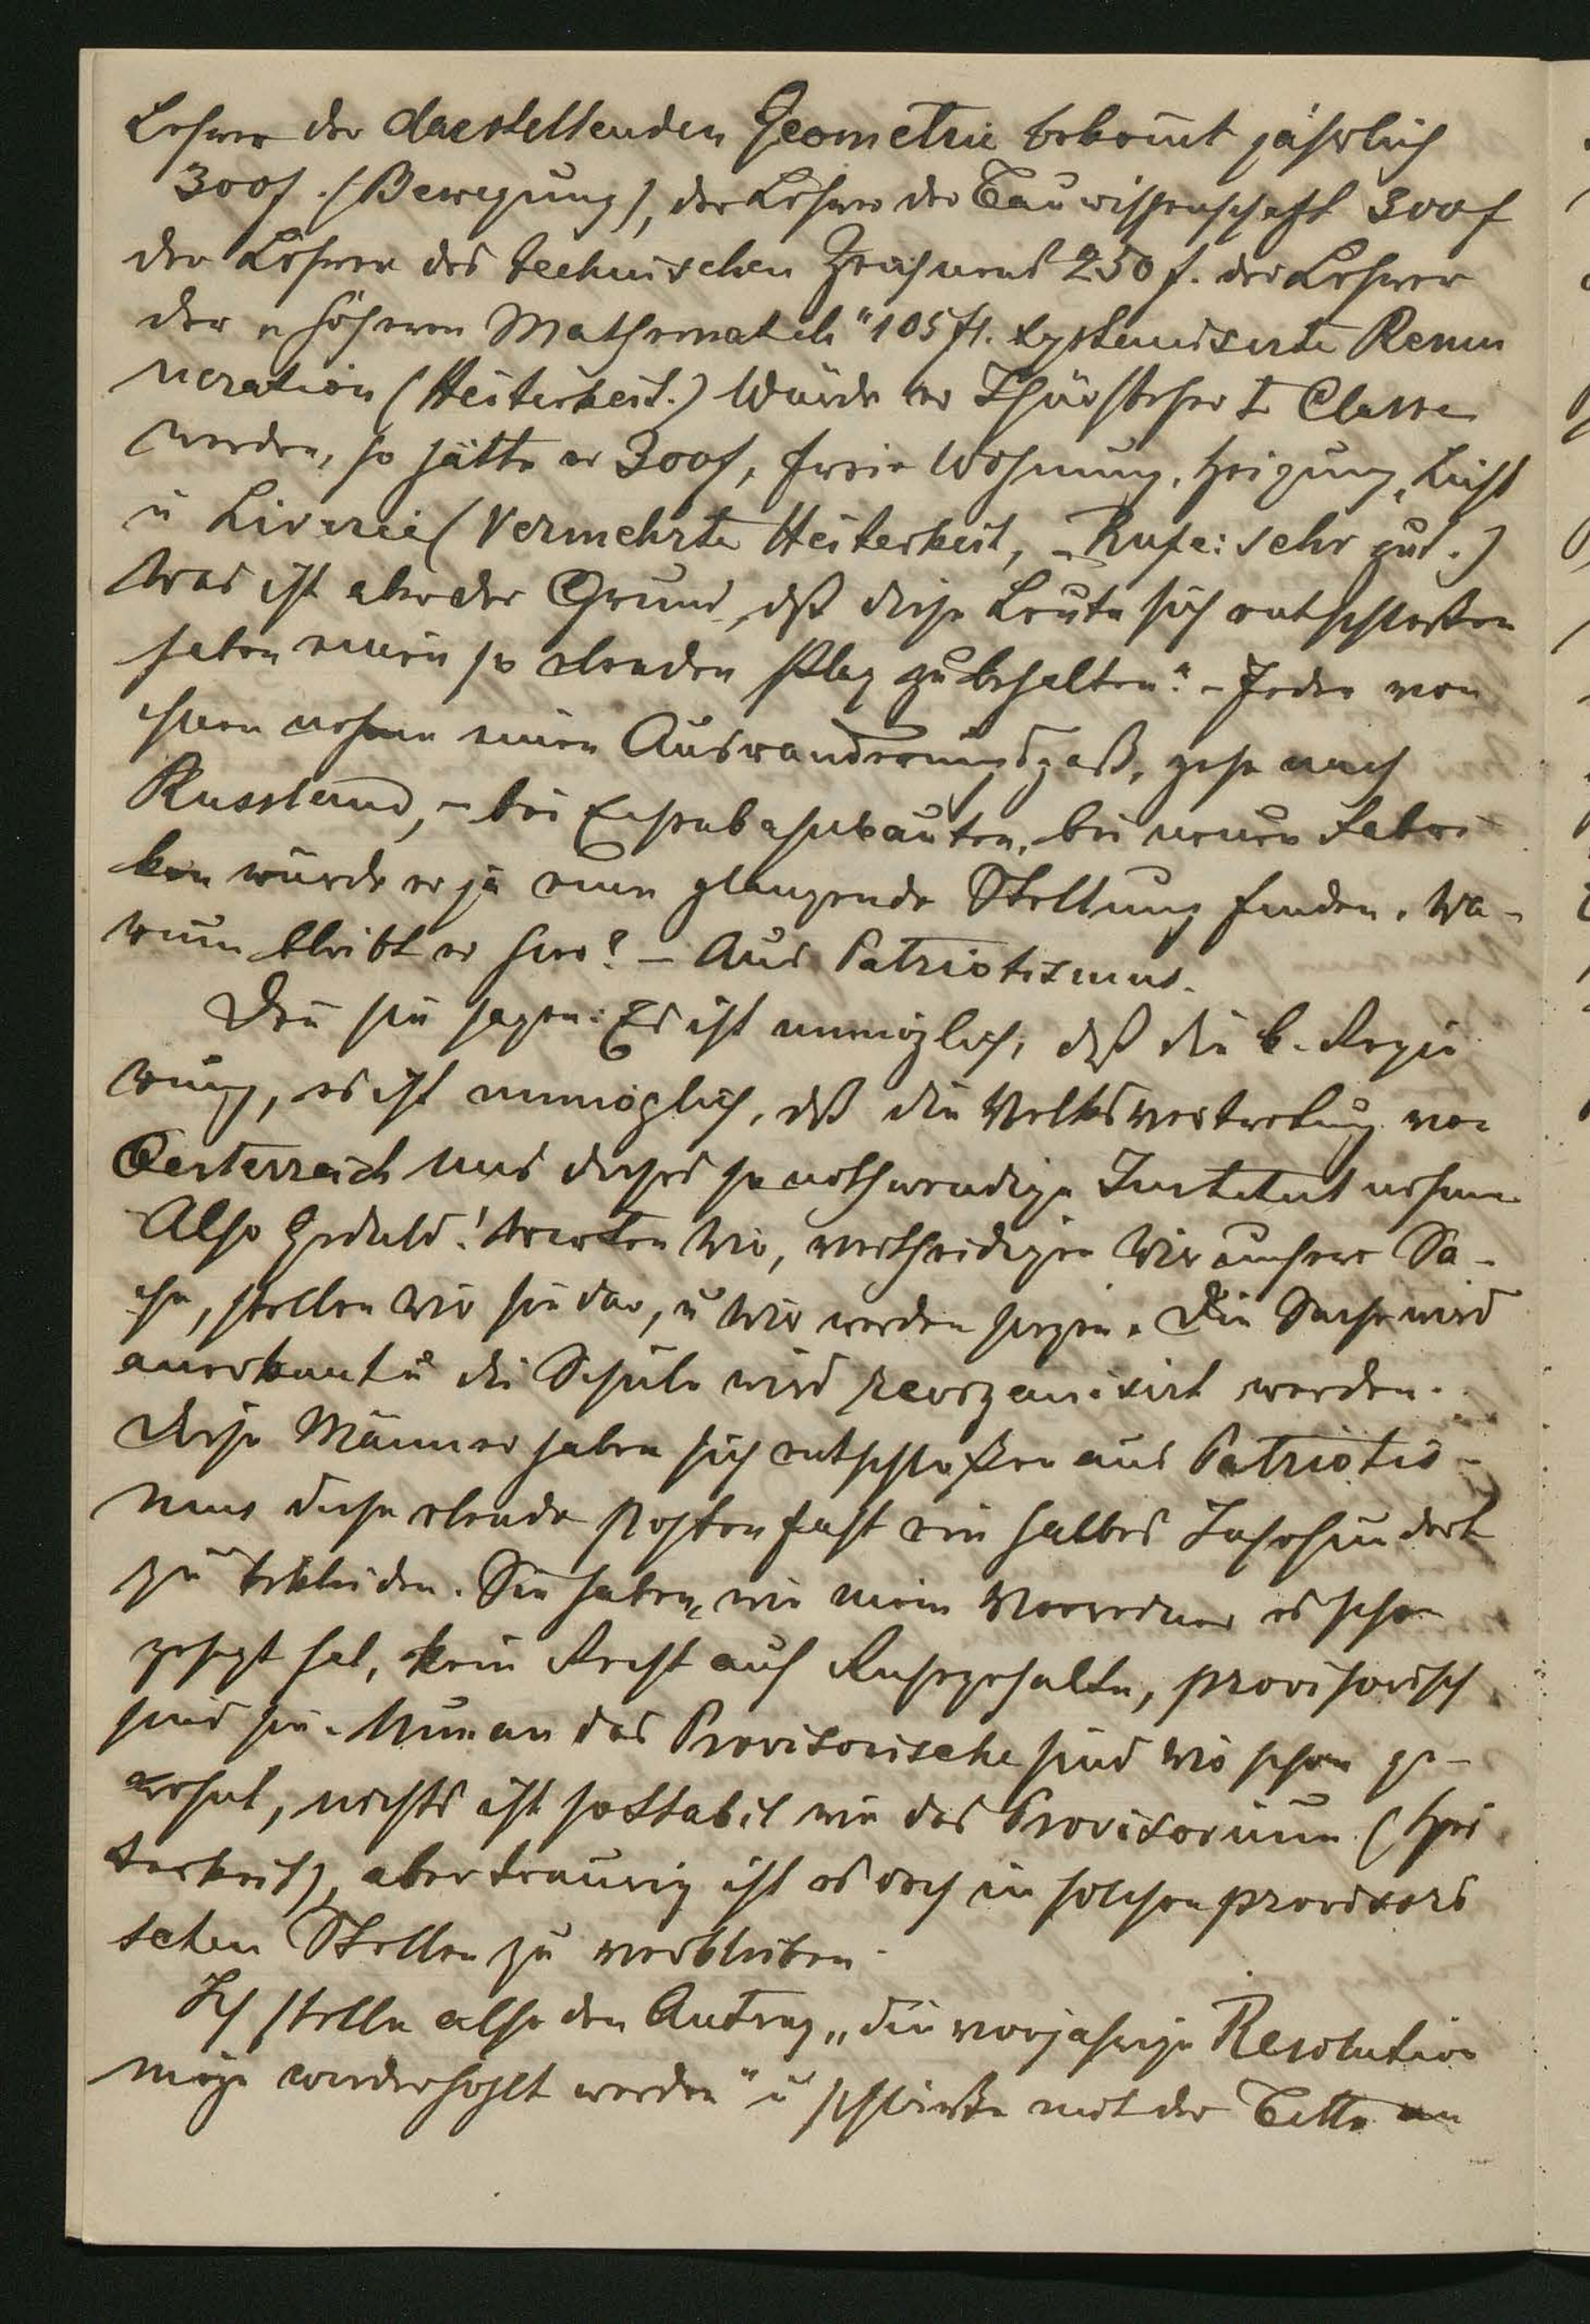 Lehrer der darstellenden Geometrie bekom̅t jährlich
300f. (Bewegung), der Lehrer der Bauwissenschaft 300f
der Lehrer des technischen Zeichnens 250 f. der Lehrer
der „höheren Mathematik“ 105 fl. systemisirte Remu
neration (Heiterkeit.) Würde er Thürsteher I Classe
werden, so hätte er 300f, freie Wohnung, Heizung, Licht
u Livreé (Vermehrte Heiterkeit, – Rufe: sehr gut.)
Was ist aber der Grund, dß diese Leute sich entschloßen
haben einen so elenden Platz zu behalten? – Jeder von
ihnen nehme einen Auswanderungspaß, gehe nach
Russland, – bei Eisenbahnbauten, bei neuen Fabri
ken würde er ja eine glänzende Stellung finden. Wa-
rum bleibt er hier? – Aus Patriotismus.
Den̅ sie sagen: Es ist unmöglich, daß die k. Regie
rung, es ist unmöglich, dß die Volksvertretung von
Oesterreich uns dieses so nothwendige Institut nehme.
Also Geduld! Warten wir, vertheidigen wir unsere Sa-
che, stellen wir sie dar, u wir werden siegen. Die Sache wird
anerkannt u die Schule wird reorganisirt werden.
Diese Männer haben sich entschloßen aus Patriotis-
mus diese elende Posten fast ein halbes Jahrhundert
zu bekleiden. Sie haben, wie mein Vorredner es schon
gesagt hat, kein Recht auf Ruhegehalte, provisorisch
sind sie. Nun an das Provisorische sind wir schon ge-
wohnt, nichts ist so stabil wie das Provisorium (Hei
terkeit), aber traurig ist es doch in solchen provisori
schen Stellen zu verbleiben.
Ich stelle also den Antrag „die vorjährige Resolution
möge wiederhohlt werden“ u schließe mit der Bitte an